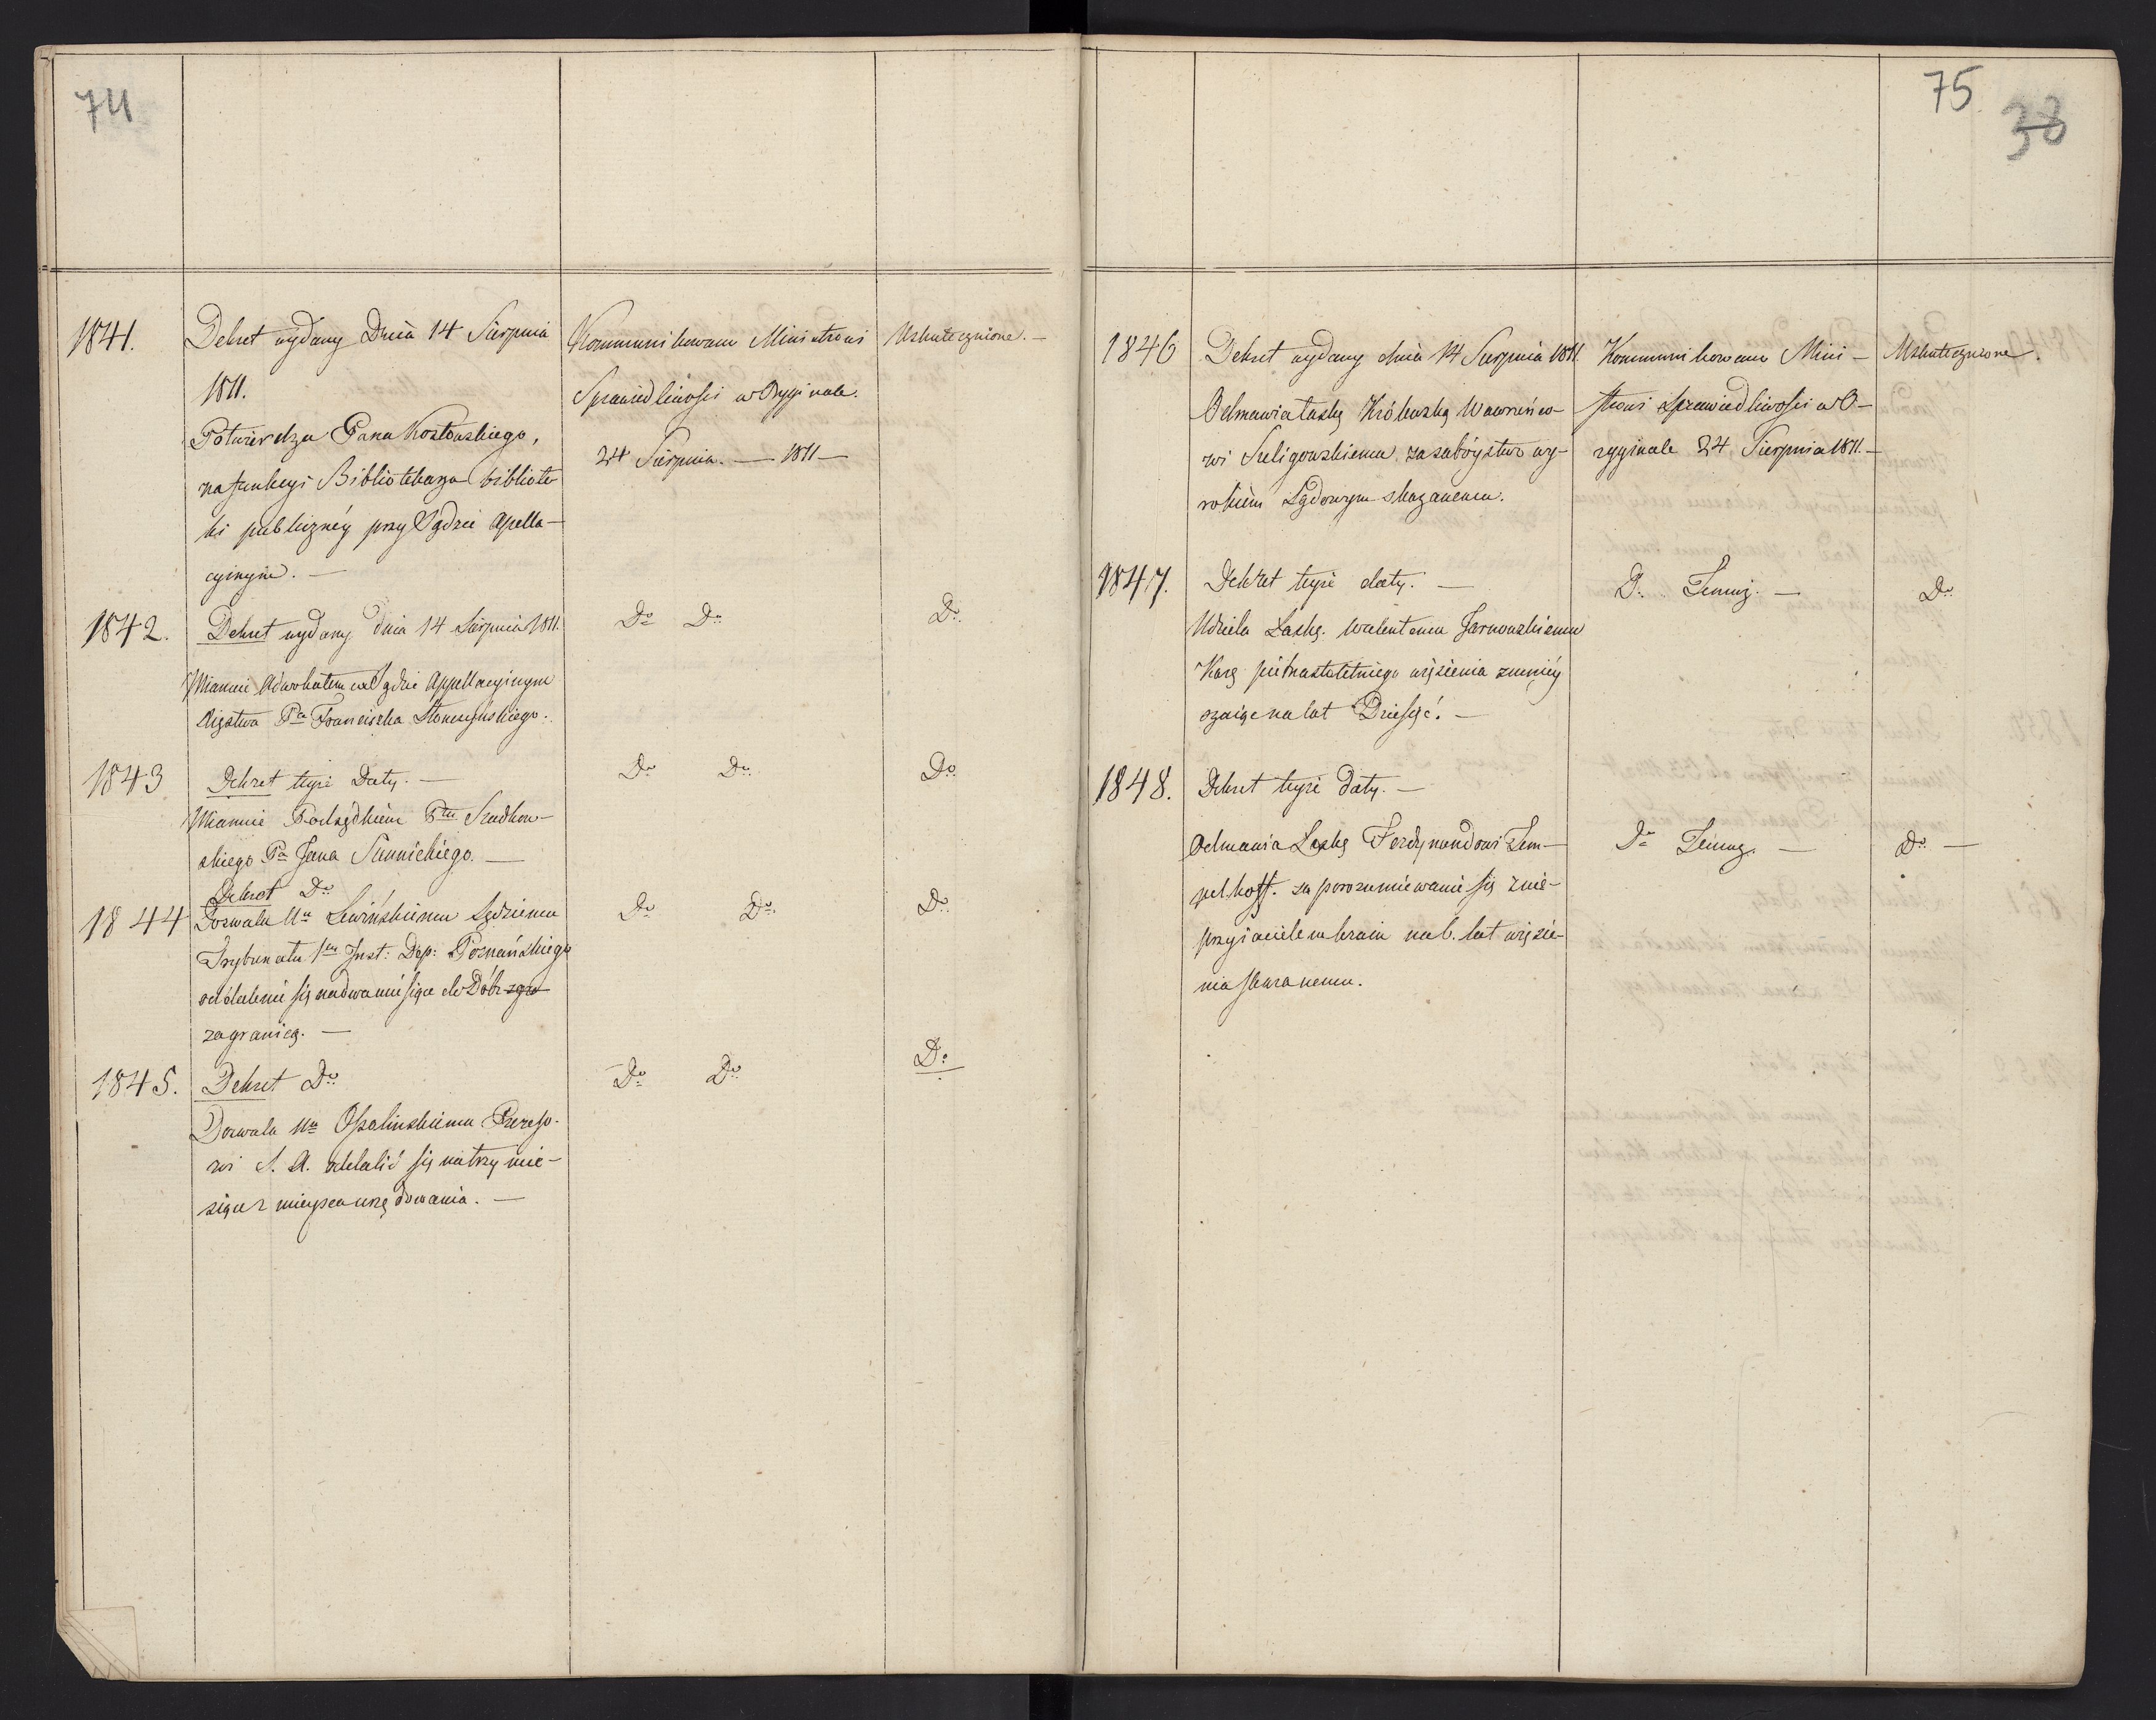 74
1841. Dekret wydany Dnia 14 Sierpnia
1811.
Potwierdza Pana Kostowskiego,
na funkcyi Bibliotekarza bibliote
ki publiczney przy Sądzie Apella-
cyinym. —
Kommunikowane Ministrowi
Sprawiedliwości w Oryginale.
24 Sierpnia. — 1811 —
Uskutecznione. —
1842. Dekret wydany dnia 14 Sierpnia 1811.
Mianuie Adwokatem w Sądzie Appellacyinym
Xięstwa Pa Franciszka
Do Do
Do
1843 Dekret teyże Daty. —
Mianuie Podsędkiem Ptu Szadkow-
skiego Pa Jana
Do Do
Do
Dekret Do
1844 Pozwala Ur Lewińskiemu Sędziemu
Trybunału 1ey Inst: Dep: Poznańskiego
oddalenie się na dwa miesiące do Dóbr zgra
zagranicę. —
Do Do
Do
1845. Dekret Do
Dozwala Ur Opalinskiemu Prezeso-
wi S. A. oddalić się na trzy mie-
siące z mieysca urzędowania. —
Do Do
Do
75
38
1846 Dekret wydany dnia 14 Sierpnia 1811.
Odmawia łaskę Królewską Wawrzeńco-
wi Seligowskiemu za zabóystwo wy-
rokiem Sądowym skazanemu.
Kommunikowane Mini-
strowi Sprawiedliwości w O-
ryginale 24 Sierpnia 1811. —
Uskutecznione.
1847. Dekret teyże daty. —
Udziela Łaskę. Walentemu Jarnowskiemu
Karę piętnastoletniego więzienia zmniey
szaiąc na lat Dziesięć. —
Do Temuż. —
Do
1848. Dekret teyże daty. —
Odmawia Łaskę Ferdynandowi Tem-
pelhoff. za porozumiewanie się z nie-
przyiacielem kraiu na 6. lat więzie-
nia skazanemu.
Do Temuż. —
Do —